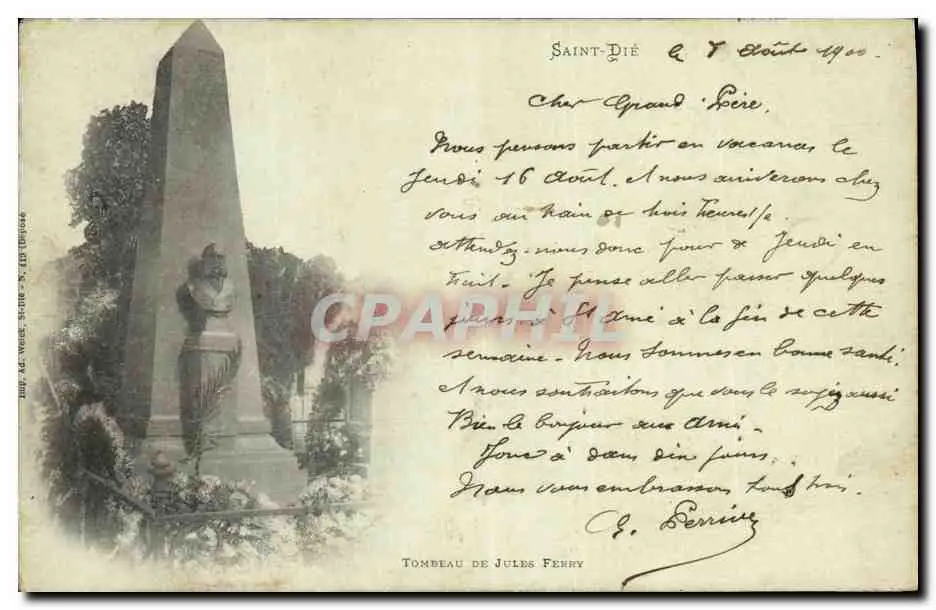 SAINT-DIÉ le 7 Août 1900
Cher Grand Père,
Nous pensons partir en vacances le
Jeudi 16 Août. et nous arriverons chez
vous au train de trois heures 1/2.
attendez-nous donc pour de Jeudi en
huit. Je pense aller passer quelques
jours à St Amé à la fin de cette
semaine. Nous sommes en bonne santé.
et nous souhaitons que vous le soyez aussi
Bien le bonjour aux Amé.
Donc à dans dix jours.
Nous vous embrassons tous
G. Perrine
TOMBEAU DE JULES FERRY
Imp. Ad. Weick, St-Dié - N. 119 (Déposé
CPARAPHIL